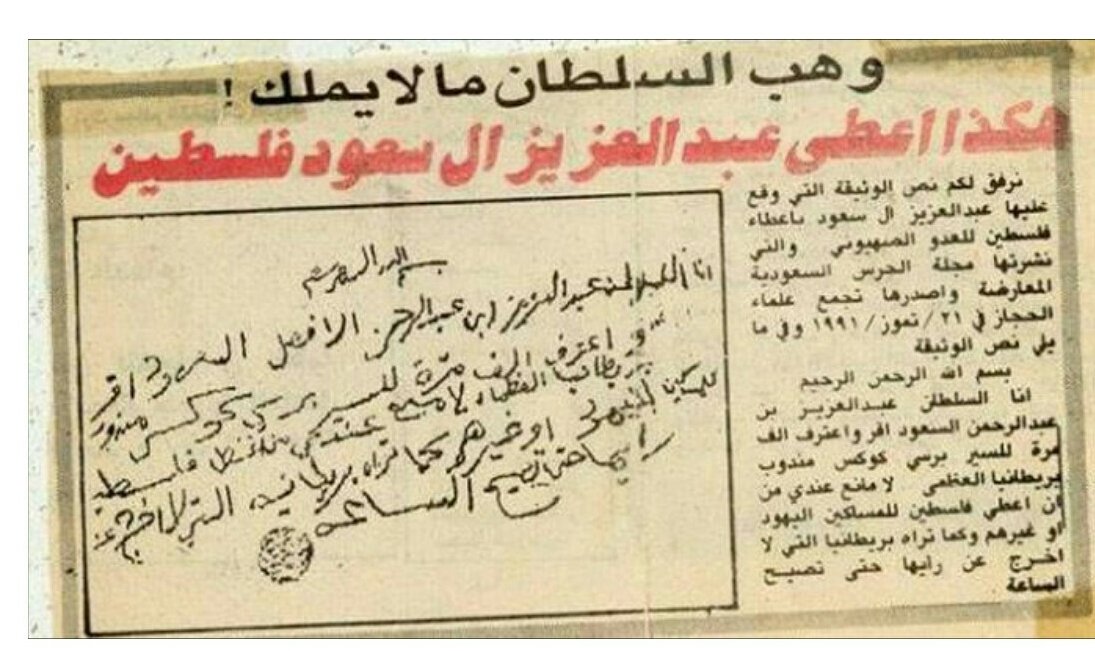 وهب السلطان مالا يملك !
هكذا اعطى عبدالعزيز ال سعود فلسطين
نرفق لكم نص الوثيقة التي وقع
عليها عبدالعزيز ال سعود باعطاء
فلسطين للعدو الصهيوني والتي
نشرتها مجلة الحرس السعودية
المعارضة واصدرها تجمع علماء
الحجاز في ٢١/تموز/١٩٩١ وفي ما
يلي نص الوثيقة
بسم الله الرحمن الرحيم
انا السلطان عبدالعزيز بن
عبدالرحمن السعود اقر واعترف الف
مرة للسير برسي كوكس مندوب
بريطانيا العظمى لا مانع عندي من
ان اعطي فلسطين للمساكين اليهود
او غيرهم وكما تراه بريطانيا التي لا
اخرج عن رايها حتى تصيح
الساعة
بسم الله الرحمن الرحيم
انا السلطان عبدالعزيز ابن عبدالرحمن الافصل السعود اقر
و اعترف الف مرة للسير برسي كوكس مندوب
بريطانيا العظماء لا مانع عندي من اعطي فلسطين
للمساكين اليهود او غيرهم كما تراه بريطانيا التي لا اخرج عن
رايها حتى تصيح الساعة